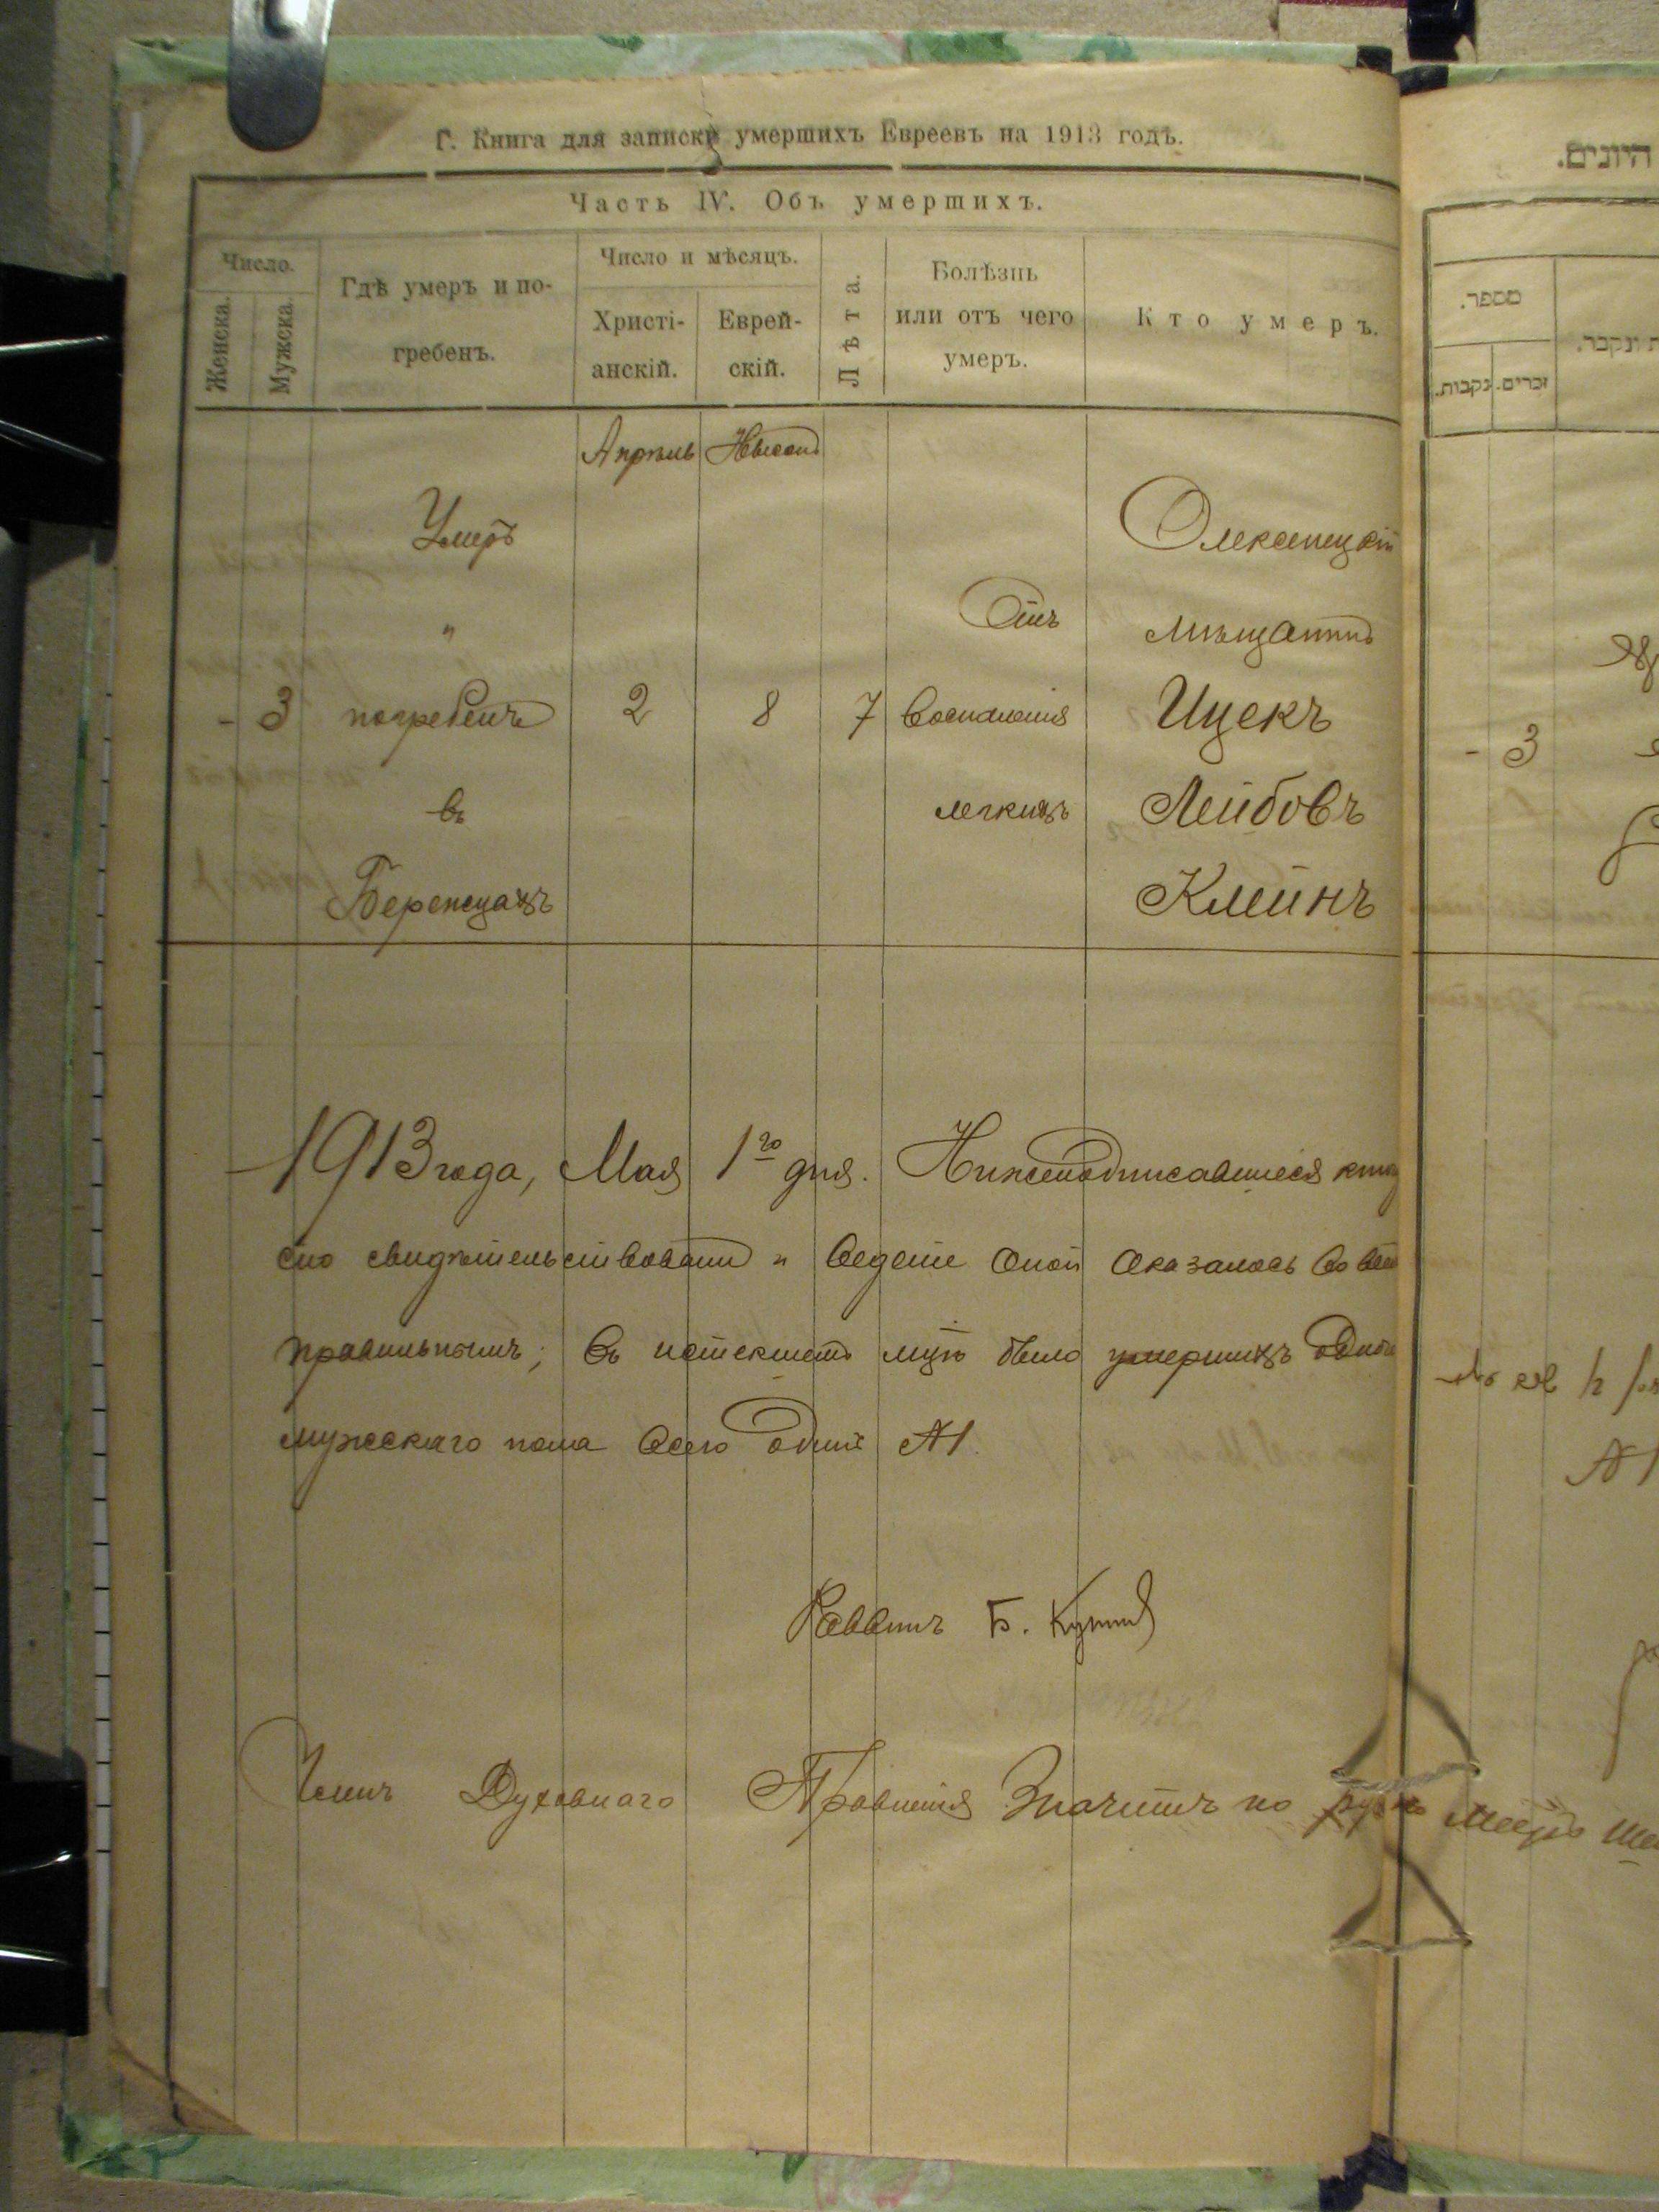 Г. Книга для записки умершихъ Евреевъ на 1913 годъ.
Часть IV. Объ умершихъ.
Число.
Женска.
Мужска.
Гдѣ умеръ и по-
гребенъ.
Число и мѣсяцъ.
Христі-
анскій.
Еврей-
скій.
Лѣта.
Болѣзнь
или отъ чего
умеръ.
Кто умеръ.
Апрѣль
Умеръ
"
- 3 погребенъ 2 8 7
въ
Бережцахъ
Отъ
Воспаленія
легкихъ
мѣщанинъ
Ицекъ
Лейбовъ
Клейнъ
1913 года, Мая 1го дня. Нижеподписавшіеся
сію свидѣтельствовали и веденіе оной оказалось во
правильнымъ; въ истекшемъ мцѣ было умершихъ
мужескаго пола всего одинъ №1.
Раввинъ Б.
Членъ Духовнаго Правленія
היונים.
מספר.
זכרים.
נקבות.
ונקבר.
- 3